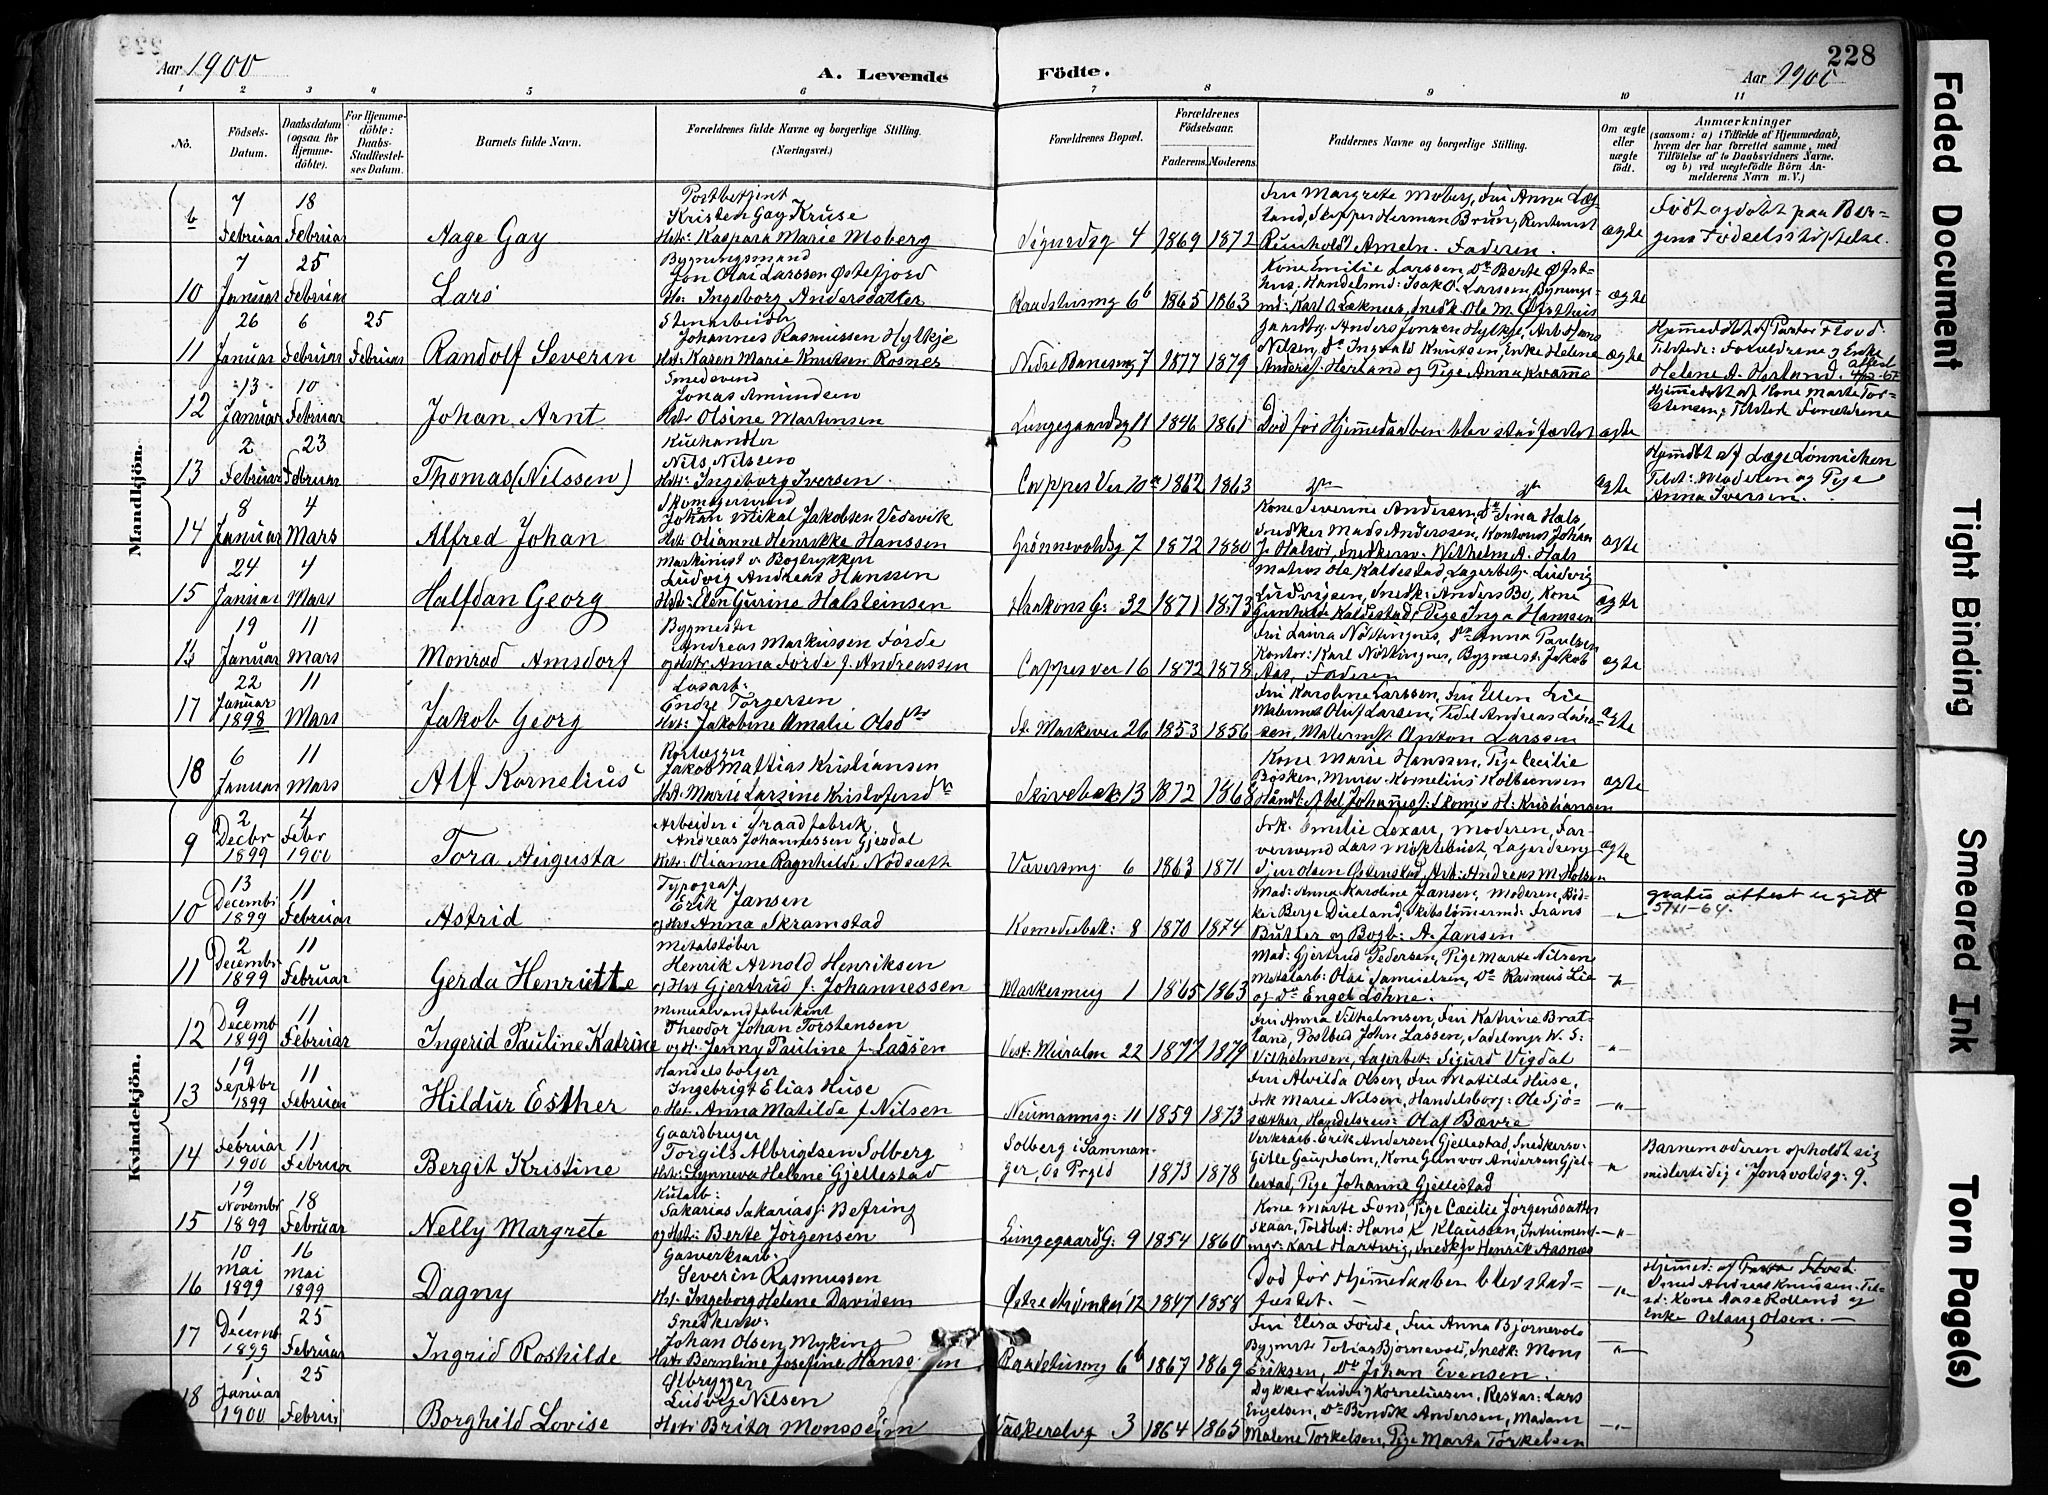 228
Aar 1900
A. Levende Födte.
Aar 1900
1 2 3 4 5 6 7 8 9 10 11
No.
Födsels-Datum.
Daabsdatum (ogsaa for Hjemmedöbte).
For Hjemmedöbte: Daabs-Stadfæstelses Datum.
Barnets fulde Navn.
Forældrenes fulde Navne og borgerlige Stilling.
(Næringsvei.)
Forældrenes Bopæl.
Forældrenes Födselsaar.
Faderens. Moderens.
Faddernes Navne og borgerlige Stilling.
Om ægte eller uægte födt.
Anmærkninger
(saasom: a) i Tilfælde af Hjemmedaab, hvem der har forrettet samme, med Tilföielse af to Daabsvidners Navne. og b) ved uægtefödte Börn Anmelderens Navn m. V.)
Mandkjön.
6 7 Februar 18 Februar Aage Gay Postbetjent Kristen Gay Kruse Hst: Kaspara Marie Moberg Sigurdsg 4 1869 1872 Fru Margrete Moberg, Fru Anna Læg-land, Skipper Herman Brun, Rentenist Reinholdt Ameln. Faderen. ægte Född og döbt paa Ber-gens Födselsstiftelse.
10 7 Januar 25 Februar Lars Bygningsmand Jon Olai Larssen Østefjord H: Ingeborg Andersdatter Raadstusmg 6b 1865 1863 Kone Emilie Larssen, Do Berte Øst-hus. Handelsmd: Isak O. Larsen, Bygnings-md: Karl O. Leknes, Snedk Ole M. Østhus ægte
11 26 Januar 6 Februar 25 Februar Randolf Severin Stenarbeider Johannes Rasmussen Hylkje Hst: Karen Marie Knutsen Rosnes Nedre Banesmg 7 1877 1879 Gaardbr. Anders Jonsen Hylkje, Arb Hans Nilsen, Do Ingvald Knutsen, Enke Helene Anders. Herland og Pige Anna Kvamme ægte Hjemmedöbt af Pastor Flood Tilstede: Forældrene og Enke Helene A. Herland.
12 13 Januar 10 Februar Johan Arnt Smedsvend Jonas Amundsen Hst: Olsine Martinsen Lungegaardsg 11 1846 1861 Død før Hjemmedaaben blev stadfæstet ægte Hjemmedöbt af Kone Marte Tor-stensen, Tilsted Forældrene
13 2 Februar 23 Februar Thomas (Nilssen) Kuehandler Nils Nilssen Hst: Ingeborg Iversen. Cappes Vei 10a 1862 1863 Do Do ægte Hjemdbt af Læge Lønnicken Tilst: Moderen og Pige Anna Iversen.
14 8 Januar 4 Mars Alfred Johan Skomagersvend Johan Mikal Jakobsen Vedevik Hst: Olianne Henrikke Hanssen Grønnevoldsg 7 1872 1880 Kone Severine Andersen, Do Sina Hals, Snedker Mads Anderssen, Kontorist Johan J. Halsor, Snedkersv. Wilhelm A. Hals ægte
15 24 Januar 4 Mars Halfdan Georg Maskinist v Bogtrykken Ludvig Andreas Hanssen Hst: Elen Gurine Halsteinsen Haakons G: 32 1871 1873 Matros Ole Kaldestad, Lagerbetj Ludvig Ludvigsen, Snedk: Anders Bo, Kone Gunhild Kaldestad, Pige Inga Hanssen ægte
19 Januar 11 Mars Monrad Amsdorf Bygmester Andreas Markussen Førde og Hst: Anna Førde f. Andreassen Cappesvei 16 1872 1878 Fru Laura Nøttingnes, Do Anna Paulsen Kontor: Karl Nøttingnes, Bygmest: Jakob Aas, Faderen ægte
17 22 Januar 1898 11 Mars Jakob Georg Løsarb: Endre Torgersen Hst: Jakobine Amalie Olsdtr St. Markevei 26 1853 1856 Fru Karoline Larssen, Fru Ellen Lie Malermst Oluf Larsen, Andreas Malermst Anton Larssen ægte
18 6 Januar 11 Mars Alf Kornelius Rorlægger Jakob Mathias Kristiansen Hst: Marie Larsine Kristofersdtr Skivebak: 13 1872 1868 Kone Marie Hanssen, Pige Cecilie Bøsken, Murer Kornelius Kolbeinsen Håndt: Abel Johannes: Skomgr H: Kristiansen ægte
Kvindekjön.
9 2 Decbr 1899 4 Febr 1900 Tora Augusta Arbeider i Traadfabrik Andreas Johannessen Gjerdal Hst: Olianne Ragnhilde Nødsæth Væversmg 6 1863 1871 Frk: Emilie Lexau, Moderen, Far-versvend Lars Myklebust, Lagerdreng Sjur Olsen Østenstad, Arb: Andreas M. Holsen ægte
10 13 Decembr 1899 11 Februar Astrid Typograf Erik Jansen og Hst Anna Skramstad Komediebak: 8 1870 1874 Mad: Anna Karoline Jansen, Moderen, Bød-ker Berge Dueland, Skibstømmermd: Frans Butler og Bogb: A. Jansen — " — gratis attest u gitt 5/11-64.
11 2 Decembr 1899 11 Februar Gerda Henriette Metalstøber Henrik Arnold Henriksen og Hst Gjertrud f: Johannessen Markesmug 1 1865 1863 Mad: Gjertrud Pedersen, Pige Marte Nilsen Metalarb: Olai Samuelsen, Do Rasmus Lie og Do Engel Løhne. — " —
12 9 Decemb 1899 11 Februar Ingerid Pauline Katrine Mineralvandfabrikant Theodor Johan Torstensen og H: Jenny Pauline f. Lassen Vest: Muralm 22 1877 1879 Fru Anna Vilhelmsen, Fru Katrine Brat-land, Postbud John Lassen, Sadelmgr W. S: Vilhelmsen, Lagerbet: Sigurd Vigdal — " —
13 19 Septbr 1899 11 Februar Hildur Esther Handelsborger Ingebrigt Elias Huse o Hst. Anna Matilde f Nilsen Neumannsg: 11 1859 1873 Fru Alvilda Olsen, Fru Matilde Huse, Frk Marie Nilsen, Handelsborg: Ole Sjø-sæther, Handelsreis: Olaf Bævre — " —
14 1 Februar 1900 11 Februar Bergit Kristine Gaardbruger Torgils Albrigtsen Solberg Hst: Synneva Helene Gjellestad Solberg i Samnan-ger, Os Prgld 1873 1878 Verksarb. Erik Andersen Gjellestad, Snedkersv. Gitle Gaupholm, Kone Gunvor Andersen Gjel-lestad, Pige Johanne Gjellestad " Barnemoderen opholdt sig midlertidig i Jonsvoldsg: 9.
15 19 Novembr 1899 18 Februar Nelly Margrete Kularb: Sakarias Sakarias: Befring og Hst: Berte Jörgensen Lungegaard G: 9 1854 1860 Kone Marte Fond, Pige Cæcilie Jörgensdatter Skaar, Toldbet: Hans K Klaussen, Instrument-mgr: Karl Hartwig, Snedkr Henrik Aasnes — " —
16 10 Mai 1899 16 Mai 1899 Dagny Gasverksarb: Severin Rasmussen Hst. Ingeborg Helene Davidsen Østre Strømkei 12 1847 1858 Død før Hjemmedaaben blev stad-fæstet. — " — Hjemmed: af Smed Andreas Knudsen. Til-st: Kone Aase Rolland og Enke Oelaug Olsen.
17 1 Decemb 1899 25 Februar Ingrid Roshilde Snedkersv: Johan Olsen Myking Hst: Berntine Josefine Hanssen Raadstusmg 6b 1867 1869 Fru Elisa Førde, Fru Anna Bjørnevold Bygmstr Tobias Bjørnevold, Snedk: Mons Eriksen, Do Johan Evensen. — " —
18 1 Januar 1900 25 Februar Borghild Lovise Ølbrygger Ludvig Nilsen Hst: Brita Monssen Vaskerelvg 3 1864 1865 Dykker Ludvig Korneliussen, Restar: Lars Engelsen, Do Bendik Andersen, Madam Malene Torkelsen, Pige Marta Torkelsen — " —
Faded Document
Tight Binding
Smeared Ink
Torn Page(s)